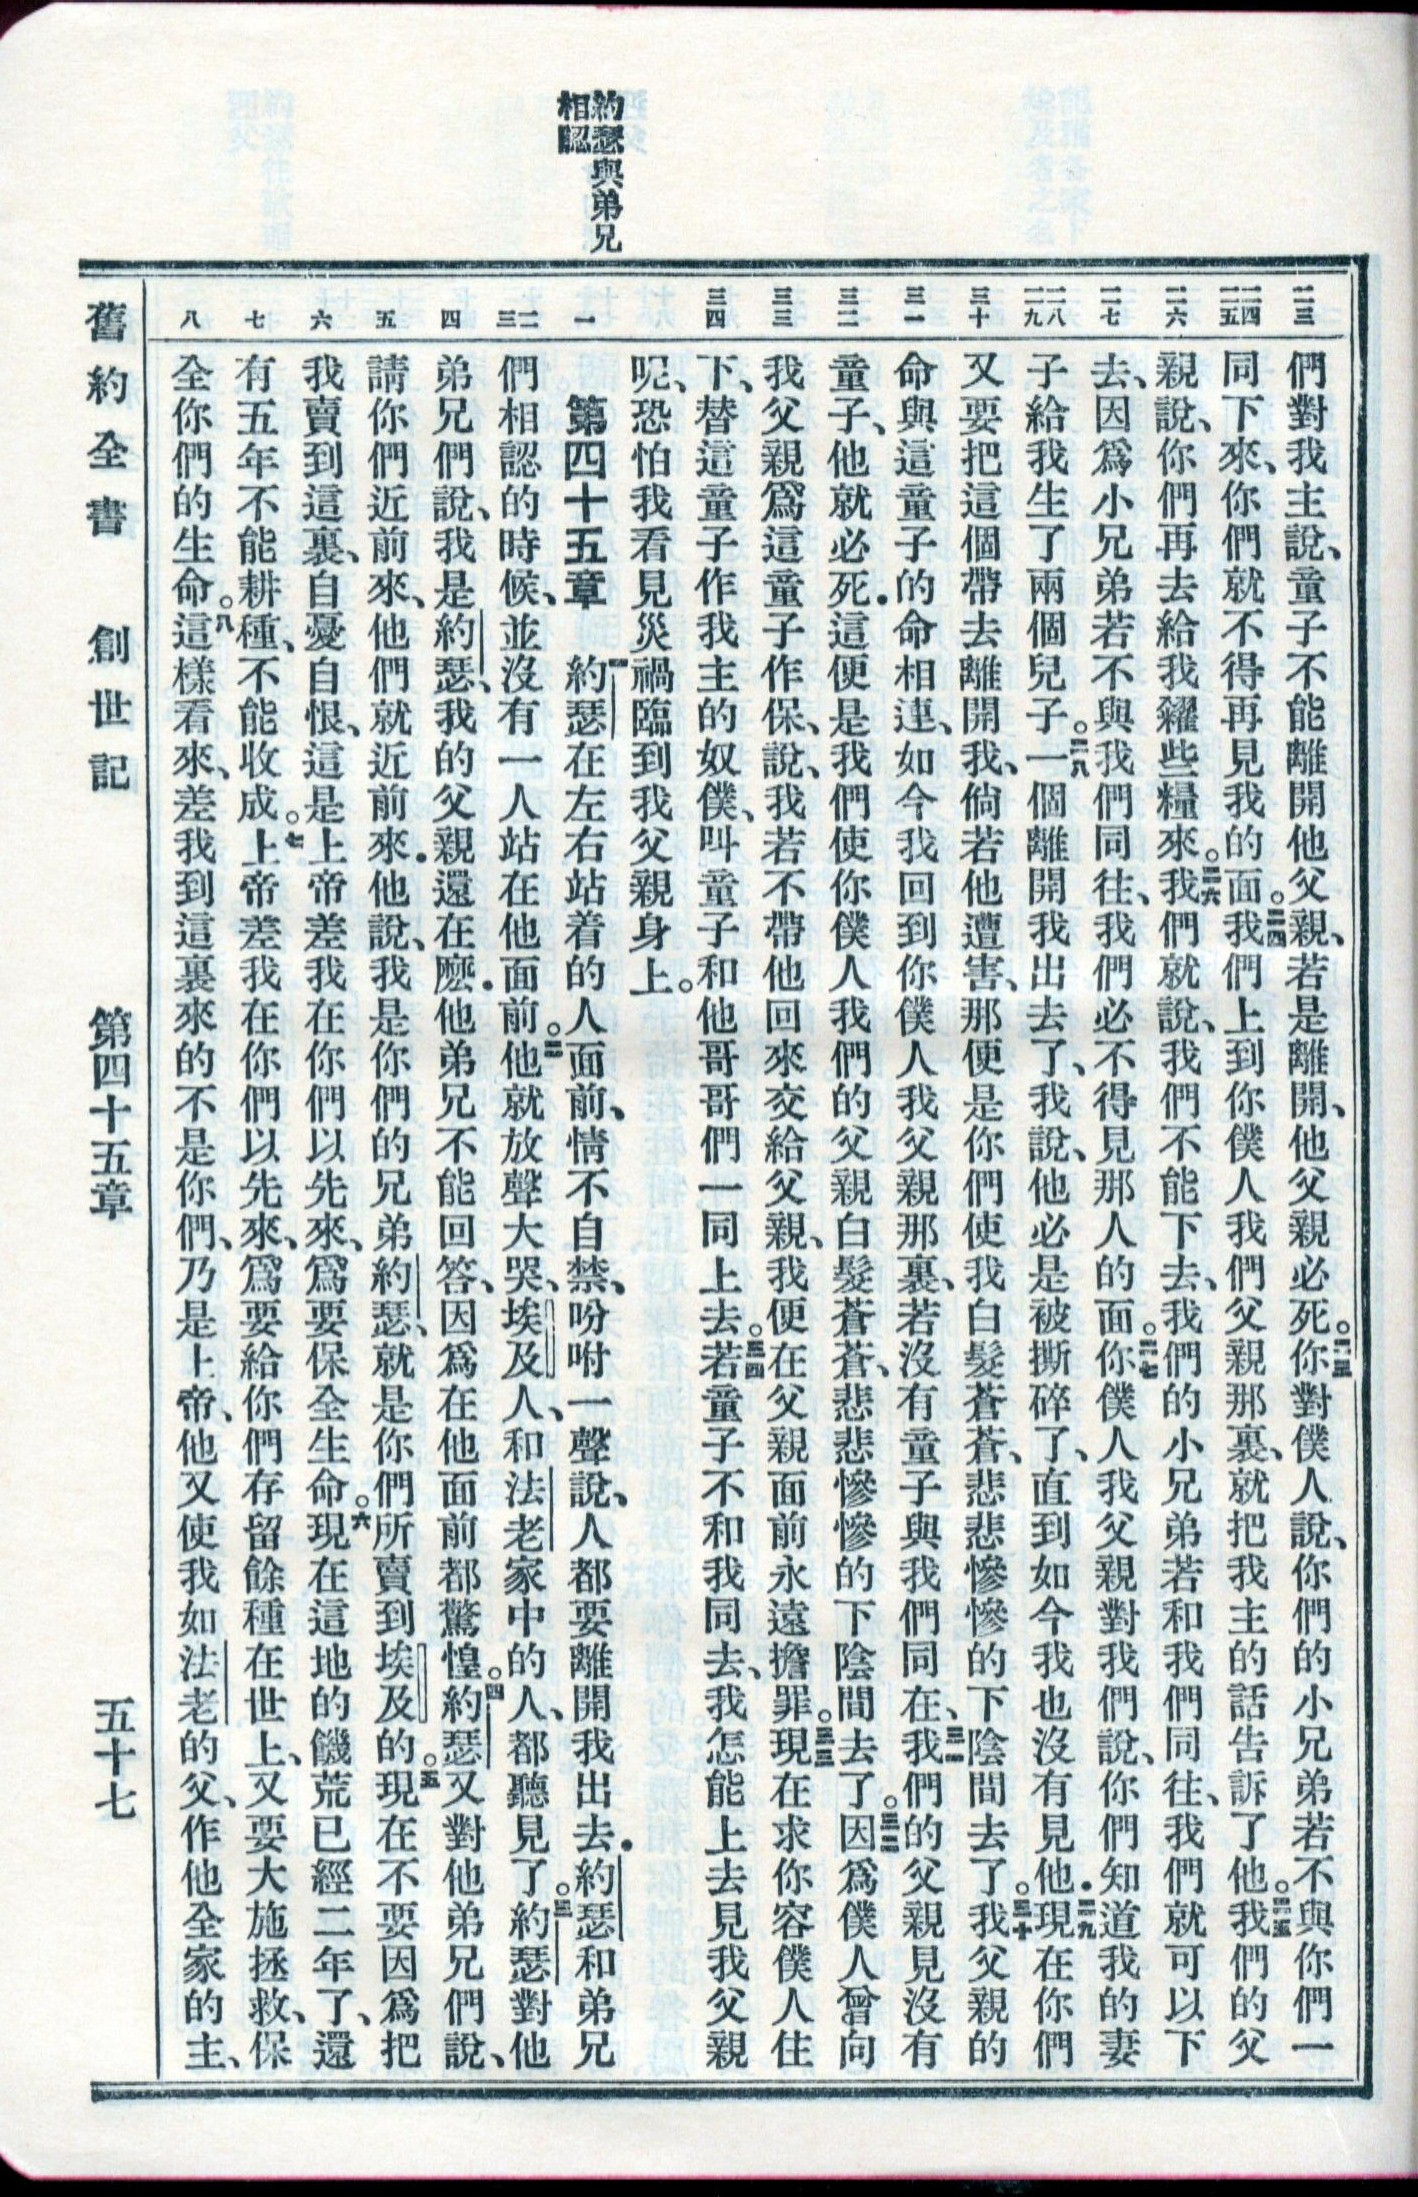 約瑟與弟兄
相認
二三 們對我主說、童子不能離開他父親、若是離開、他父親必死。二三你對僕人說、你們的小兄弟若不與你們一
二四 二五 同下來、你們就不得再見我的面。二四我們上到你僕人我們父親那裏、就把我主的話告訴了他。二五我們的父
二六 親說、你們再去給我糴些糧來。二六我們就說、我們不能下去、我們的小兄弟若和我們同往、我們就可以下
二七 去、因爲小兄弟若不與我們同往、我們必不得見那人的面。二七你僕人我父親對我們說、你們知道我的妻
二八 二九 子給我生了兩個兒子。二八一個離開我出去了、我說、他必是被撕碎了、直到如今我也沒有見他．二九現在你們
三十 又要把這個帶去離開我、倘若他遭害、那便是你們使我白髮蒼蒼、悲悲慘慘的下陰間去了。三十我父親的
三一 命與這童子的命相連、如今我回到你僕人我父親那裏、若沒有童子與我們同在、三一我們的父親見沒有
三二 童子、他就必死．這便是我們使你僕人我們的父親白髮蒼蒼、悲悲慘慘的下陰間去了。三二因爲僕人曾向
三三 我父親爲這童子作保、說、我若不帶他回來交給父親、我便在父親面前永遠擔罪。三三現在求你容僕人住
三四 下、替這童子作我主的奴僕、叫童子和他哥哥們一同上去。三四若童子不和我同去、我怎能上去見我父親
呢、恐怕我看見災禍臨到我父親身上。
一 第四十五章 一約瑟在左右站着的人面前、情不自禁、吩咐一聲說、人都要離開我出去．約瑟和弟兄
二 三 們相認的時候、並沒有一人站在他面前。二他就放聲大哭、埃及人、和法老家中的人、都聽見了。三約瑟對他
四 弟兄們說、我是約瑟、我的父親還在麽．他弟兄不能回答、因爲在他面前都驚惶。四約瑟又對他弟兄們說、
五 請你們近前來、他們就近前來．他說、我是你們的兄弟約瑟、就是你們所賣到埃及的。五現在不要因爲把
六 我賣到這裏、自憂自恨、這是上帝差我在你們以先來、爲要保全生命。六現在這地的饑荒已經二年了、還
七 有五年不能耕種、不能收成。七上帝差我在你們以先來、爲要給你們存留餘種在世上、又要大施拯救、保
八 全你們的生命。八這樣看來、差我到這裏來的不是你們、乃是上帝、他又使我如法老的父、作他全家的主、
舊約全書 創世記 第四十五章 五十七